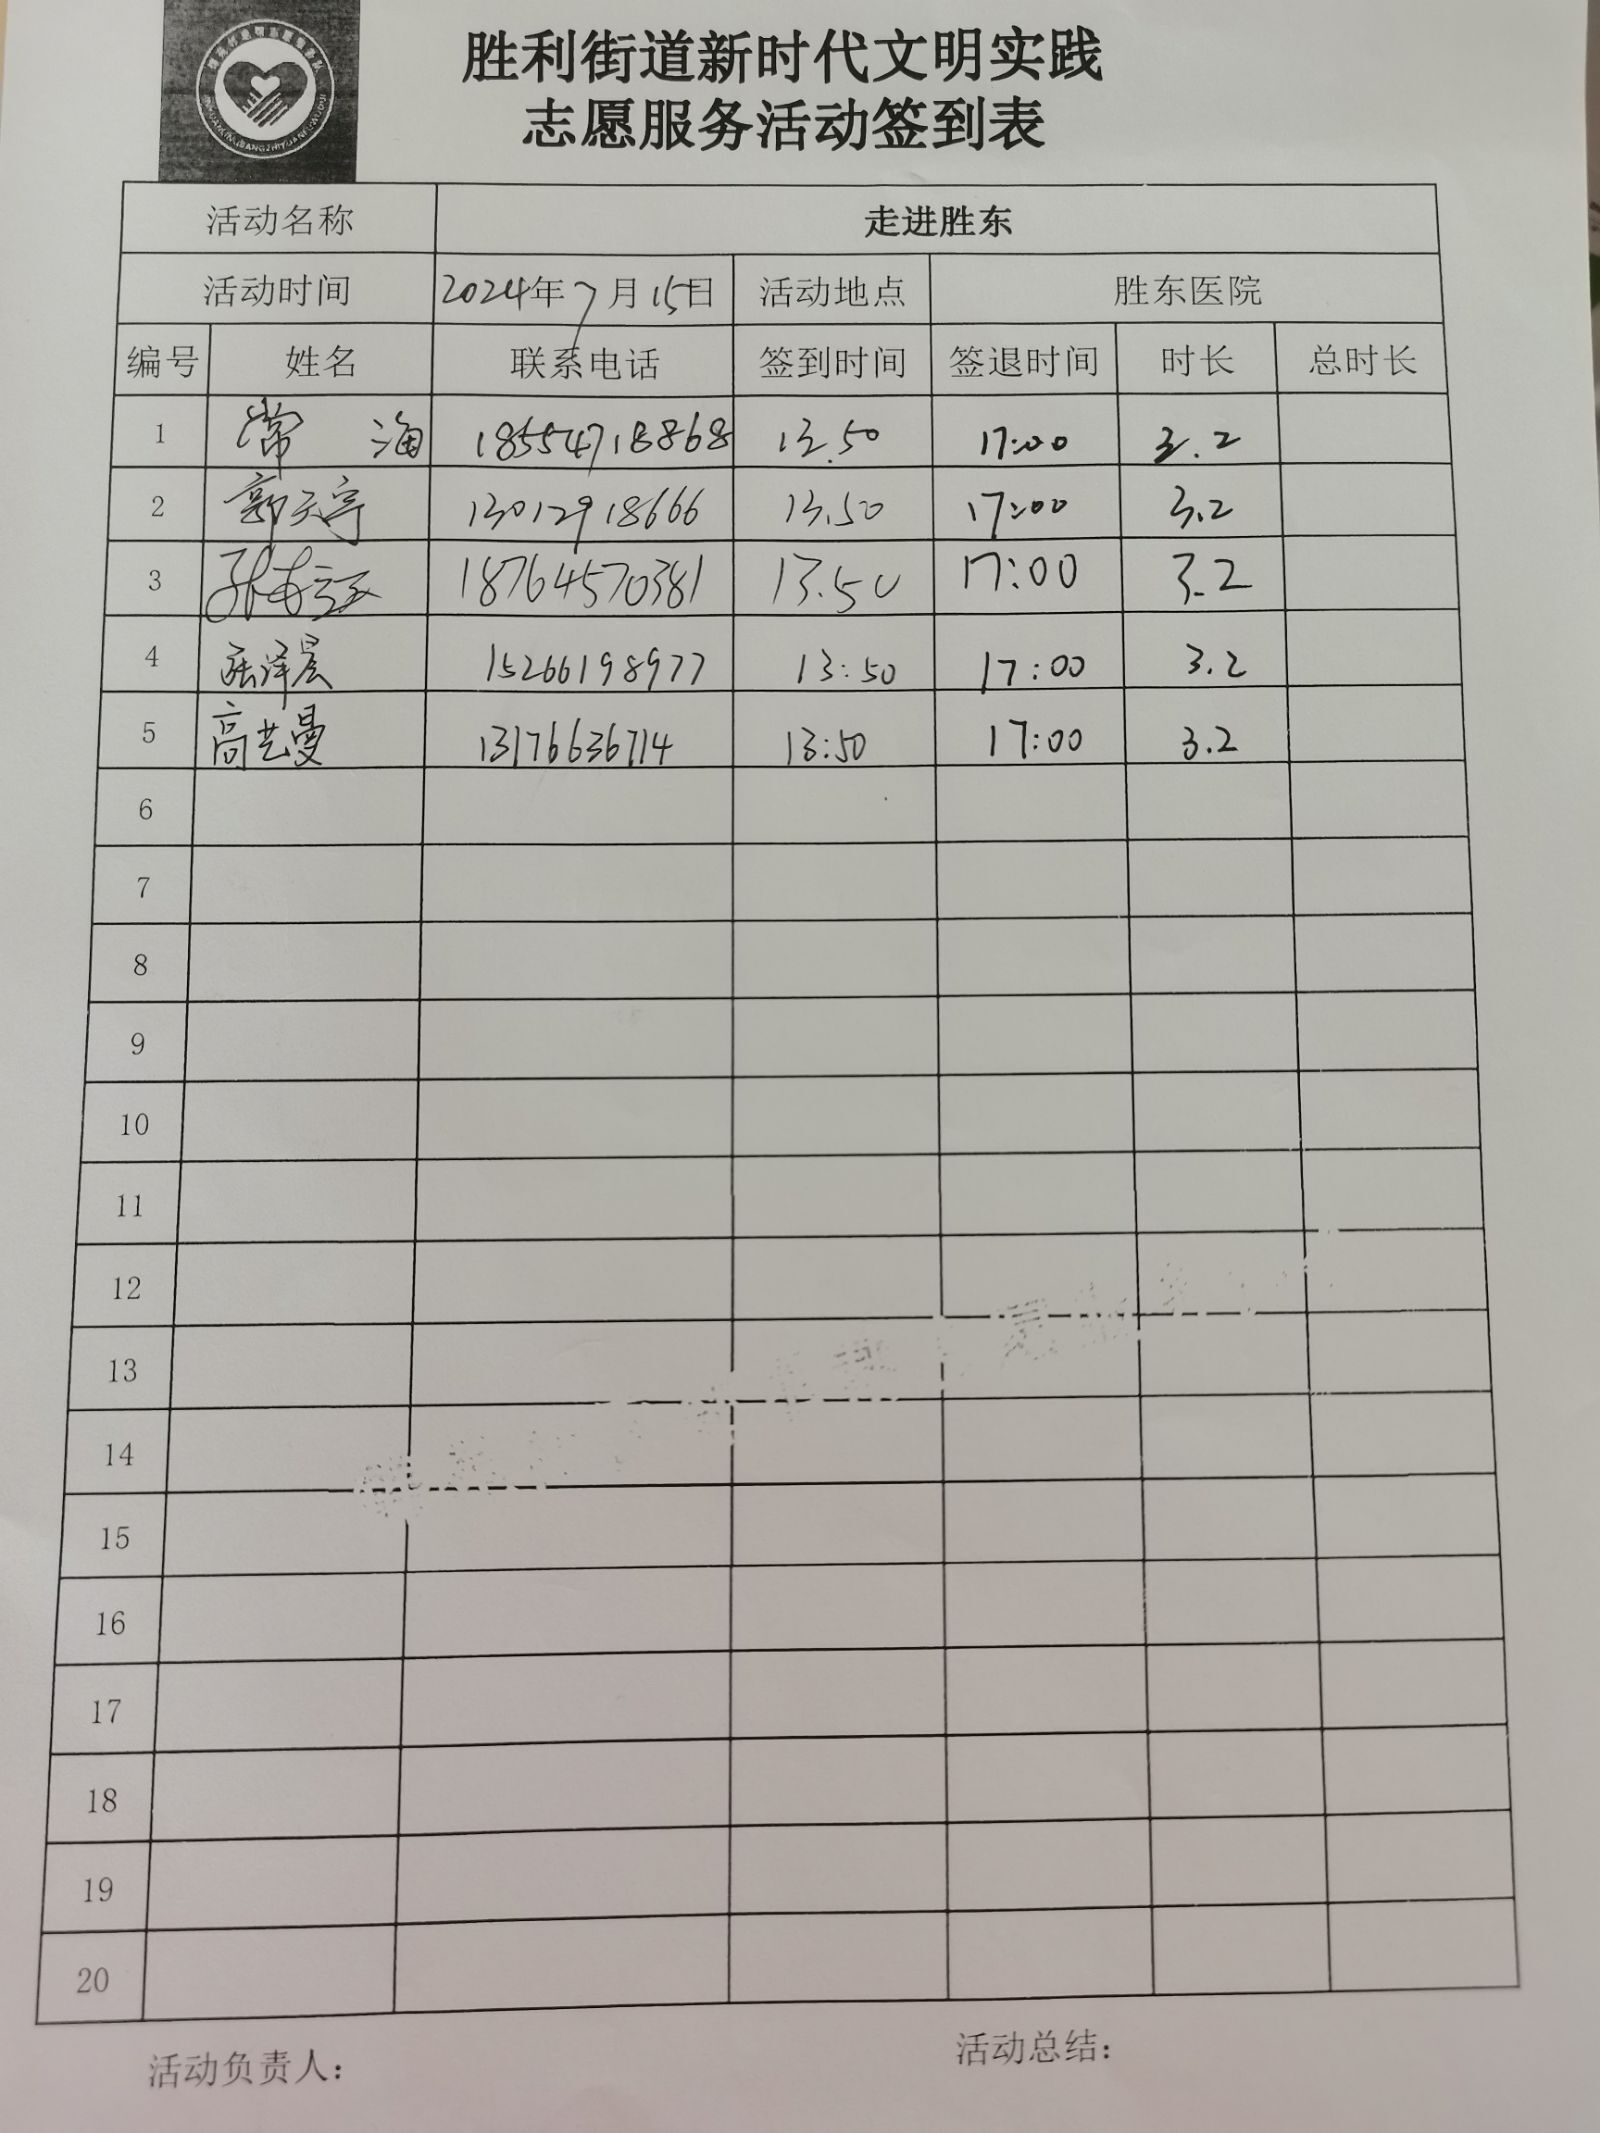 胜利街道新时代文明实践
志愿服务活动签到表
活动名称 走进胜东
活动时间 2024年7月15日 活动地点 胜东医院
编号 姓名 联系电话 签到时间 签退时间 时长 总时长
1 常海 18554718868 13.50 17:00 3.2
2 郭天宇 13012918666 13.50 17:00 3.2
3 18764570381 13.50 17:00 3.2
4 泽晨 15266198977 13:50 17:00 3.2
5 高艺曼 13176636714 13:50 17:00 3.2
6
7
8
9
10
11
12
13
14
15
16
17
18
19
20
活动负责人： 活动总结：